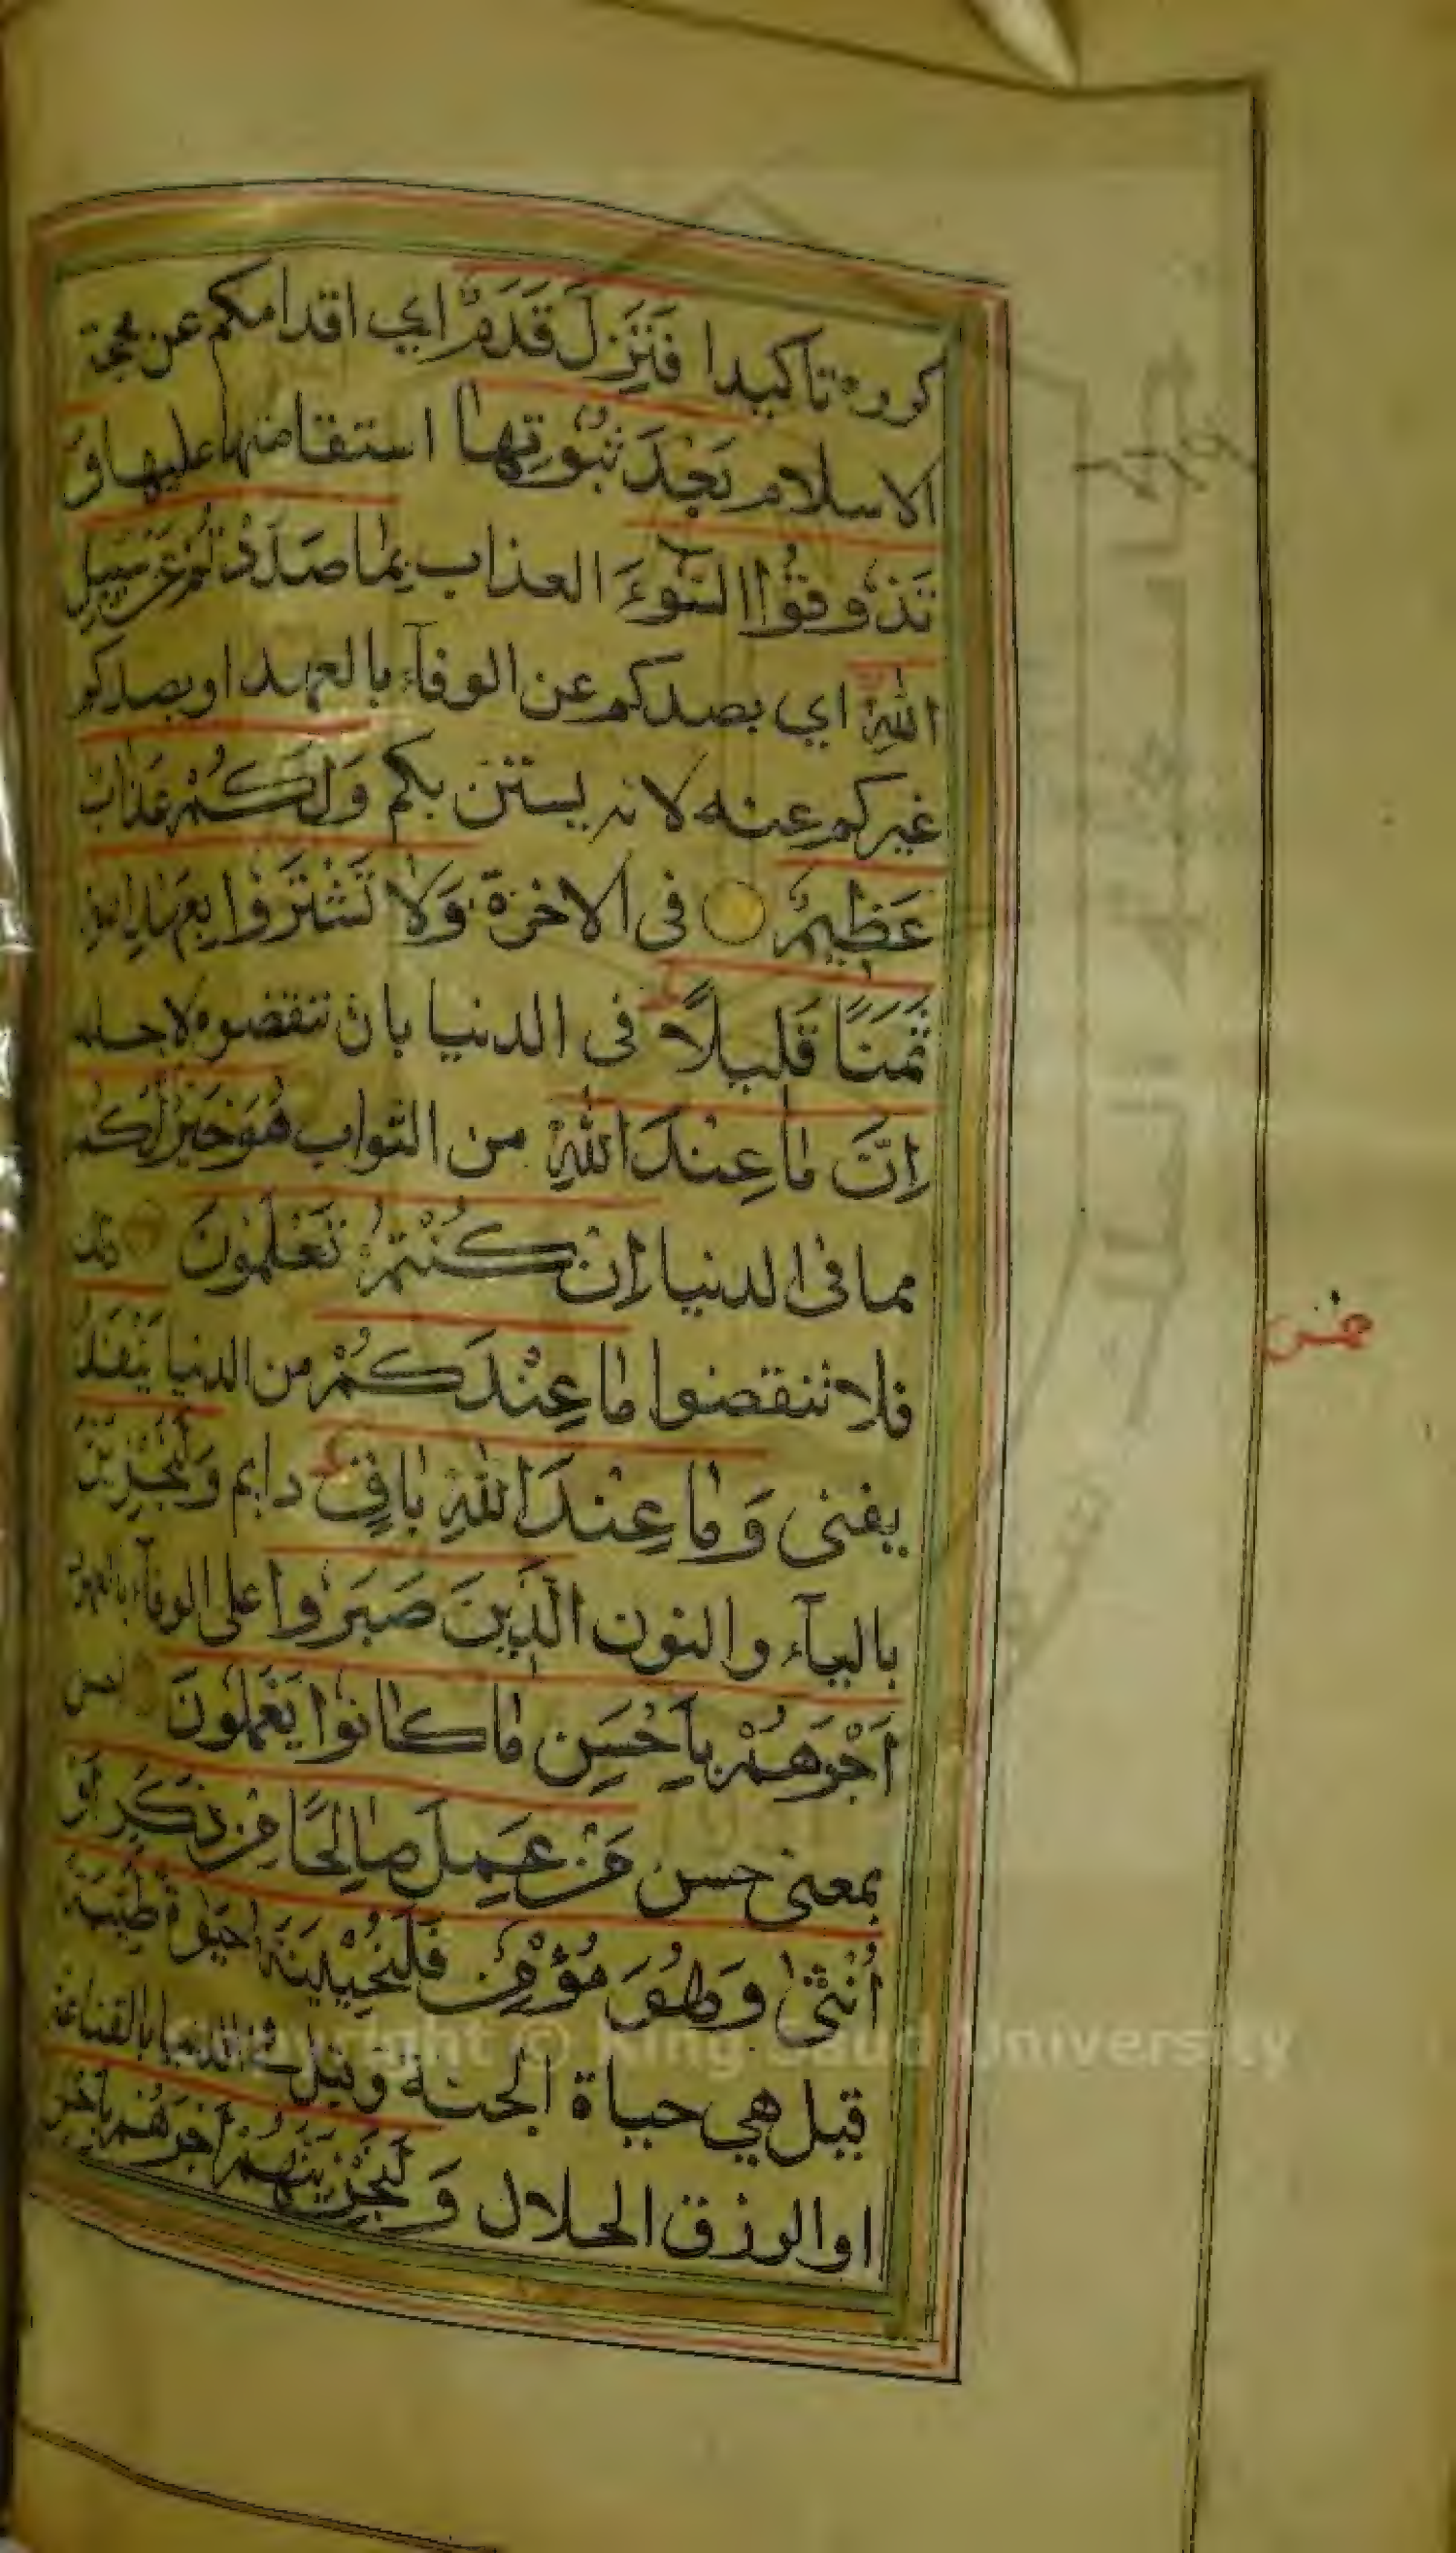 كرره تاكيدا فَتَزِلَّ قَدَمٌ اي اقدامكم عن محجة
الاسلام بَعْدَ ثُبُوتِهٰا استقامتها عليها وَ
تَذُوقُوا السُّوٓءَ العذاب بِمٰا صَدَدْتُمْ عَنْ سَبِيلِ
اللهِ اي بصدكم عن الوفآء بالعهد او بصدكم
غيركم عنه لانه يستن بكم وَلَكُمْ عَذَابٌ
عَظِيمٌ في الاخرة وَلٰا تَشْتَرُوا بِعَهْدِ اللهِ
ثَمَنًا قَلِيلًا في الدنيا بان تنقضوه لاجله
اِنَّ مٰا عِنْدَ اللهِ من الثواب هُوَ خَيْرٌ لَكُمْ
مما في الدنيا اِنْ كُنْتُمْ تَعْلَمُونَ ذلك
فلا تنقضوا مٰا عِنْدَكُمْ من الدنيا يَنْفَدُ
يفنى وَمٰا عِنْدَ اللهِ بٰاقٍ دايم وَلَيَجْزِيَنَّ
باليآء والنون الَّذِينَ صَبَرُوا على الوفآء بالعهود
اَجْرَهُمْ بِاَحْسَنِ مٰا كٰانُوا يَعْمَلُونَ احسن
بمعنى حسن مَنْ عَمِلَ صٰالِحًا مِنْ ذَكَرٍ اَوْ
اُنْثٰى وَهُوَ مُؤْمِنٌ فَلَنُحْيِيَنَّهُ حَيٰوةً طَيِّبَةً
قيل هي حياة الجنة وقيل في الدنيا بالقناعة
او الرزق الحلال وَلَنَجْزِيَنَّهُمْ اَجْرَهُمْ بِاَحْسَنِ
ثمن
Copyright © King Saud University